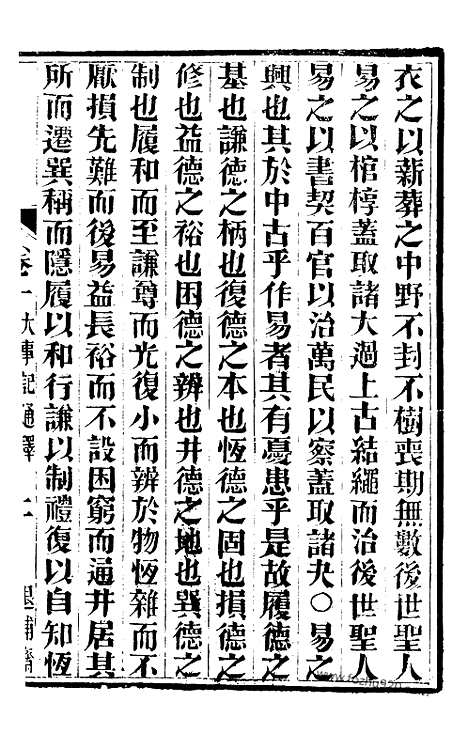 衣之以薪葬之中野不封不樹喪期無數後世聖人
易之以棺椁蓋取諸大過上古結繩而治後世聖人
易之以書契百官以治萬民以察蓋取諸夬〇易之
興也其於中古乎作易者其有憂患乎是故履德之
基也謙德之柄也復德之本也恆德之固也損德之
修也益德之裕也困德之辨也井德之地也巽德之
制也履和而至謙尊而光復小而辨於物恆雜而不
厭損先難而後易益長裕而不設困窮而通井居其
所而遷巽稱而隱履以和行謙以制禮復以自知恆
卷一大事記通釋 二
退補齋